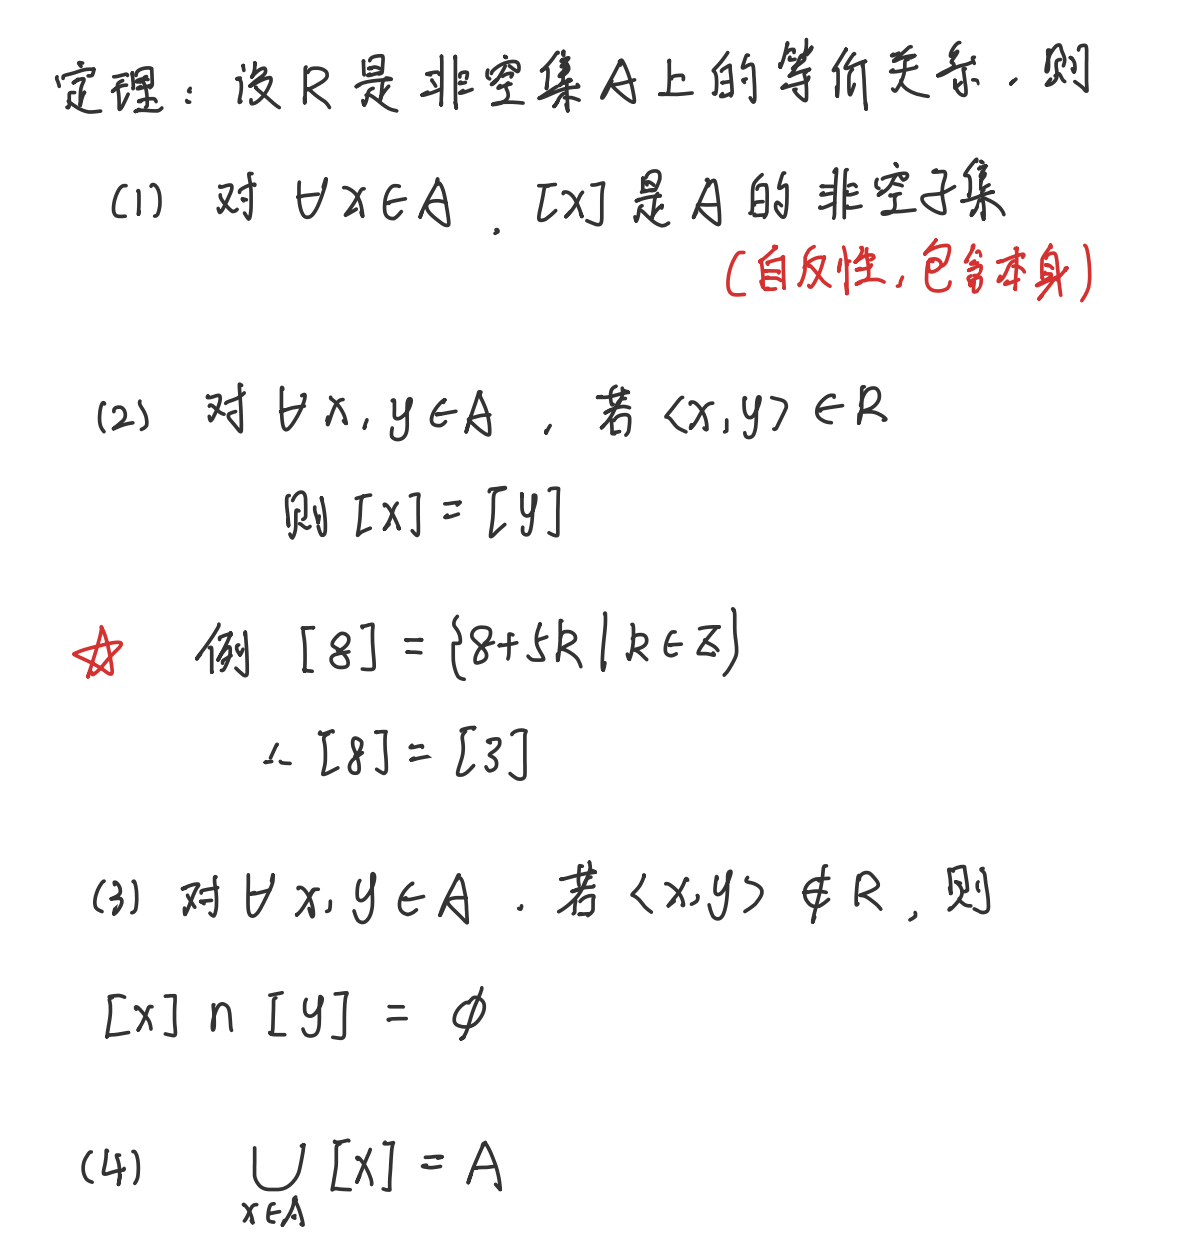 定理：设R是非空集A上的等价关系，则
(1) 对∀x∈A，[x]是A的非空子集
(自反性，包含本身)
(2) 对∀x,y∈A，若<x,y>∈R
则[x]=[y]
☆ 例 [8]={8+5k|k∈Z}
∴[8]=[3]
(3) 对∀x,y∈A，若<x,y>∉R，则
[x]∩[y]=∅
(4) ∪[x]=A
x∈A